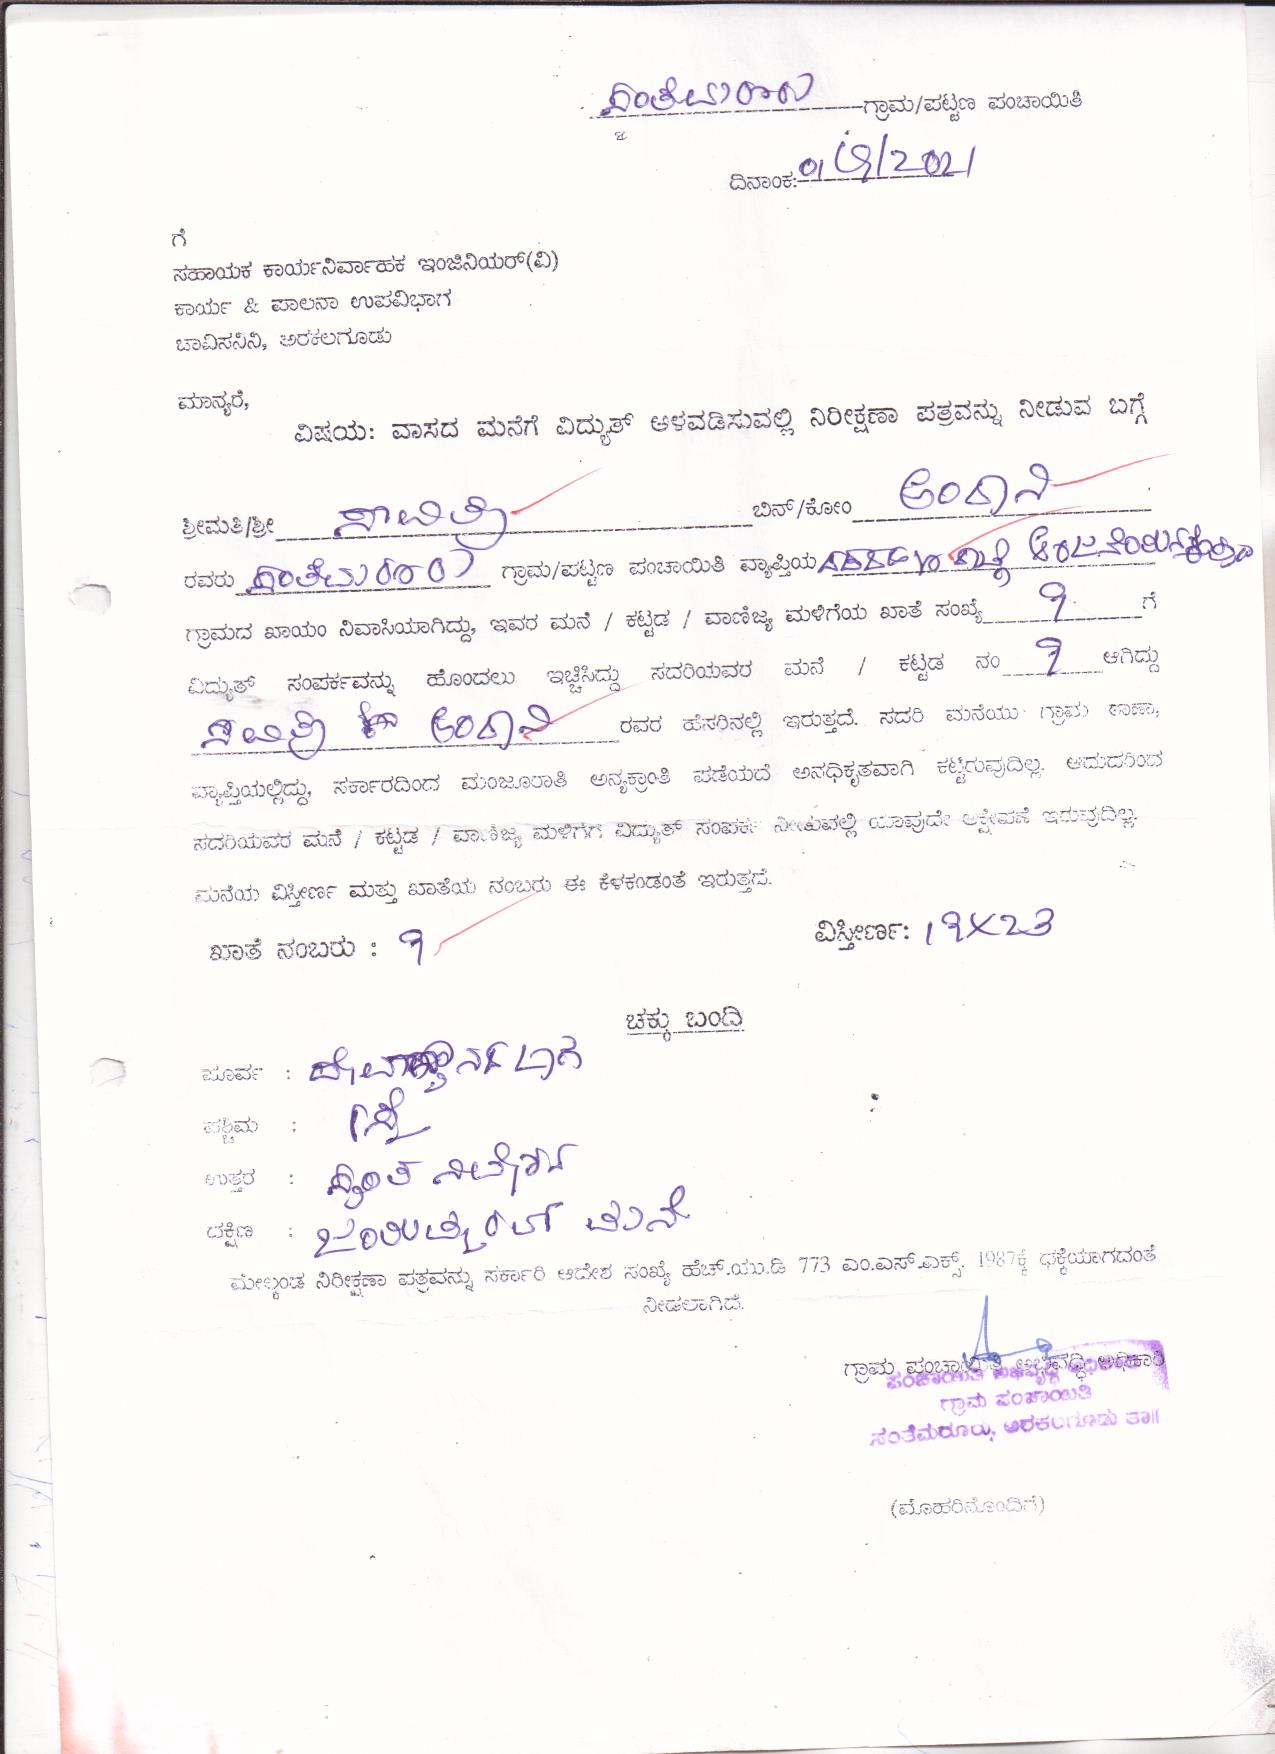 ಸಂತೆಮರೂರು ಗ್ರಾಮ/ಪಟ್ಟಣ ಪಂಚಾಯಿತಿ
ದಿನಾಂಕ: /2021
ಗೆ
ಸಹಾಯಕ ಕಾರ್ಯನಿರ್ವಾಹಕ ಇಂಜಿನಿಯರ್(ವಿ)
ಕಾರ್ಯ & ಪಾಲನಾ ಉಪವಿಭಾಗ
ಚಾವಿಸನಿನಿ, ಅರಕಲಗೂಡು
ಮಾನ್ಯರೆ,
ವಿಷಯ: ವಾಸದ ಮನೆಗೆ ವಿದ್ಯುತ್ ಅಳವಡಿಸುವಲ್ಲಿ ನಿರೀಕ್ಷಣಾ ಪತ್ರವನ್ನು ನೀಡುವ ಬಗ್ಗೆ
ಶ್ರೀಮತಿ/ಶ್ರೀ ಸಾವಿತ್ರಿ ಬಿನ್/ಕೋಂ ಅಂದಾನಿ
ರವರು ಸಂತೆಮರೂರು ಗ್ರಾಮ/ಪಟ್ಟಣ ಪಂಚಾಯಿತಿ ವ್ಯಾಪ್ತಿಯ
ಗ್ರಾಮದ ಖಾಯಂ ನಿವಾಸಿಯಾಗಿದ್ದು, ಇವರ ಮನೆ / ಕಟ್ಟಡ / ವಾಣಿಜ್ಯ ಮಳಿಗೆಯ ಖಾತೆ ಸಂಖ್ಯೆ 9 ಗೆ
ವಿದ್ಯುತ್ ಸಂಪರ್ಕವನ್ನು ಹೊಂದಲು ಇಚ್ಚಿಸಿದ್ದು ಸದರಿಯವರ ಮನೆ / ಕಟ್ಟಡ ನಂ 9 ಆಗಿದ್ದು
ಸಾವಿತ್ರಿ ಕೋಂ ಅಂದಾನಿ ರವರ ಹೆಸರಿನಲ್ಲಿ ಇರುತ್ತದೆ. ಸದರಿ ಮನೆಯು ಗ್ರಾಮ ಠಾಣಾ,
ವ್ಯಾಪ್ತಿಯಲ್ಲಿದ್ದು, ಸರ್ಕಾರದಿಂದ ಮಂಜೂರಾತಿ ಅನ್ಯಕ್ರಾಂತಿ ಪಡೆಯದೆ ಅನಧಿಕೃತವಾಗಿ ಕಟ್ಟಿರುವುದಿಲ್ಲ. ಆದುದರಿಂದ
ಸದರಿಯವರ ಮನೆ / ಕಟ್ಟಡ / ವಾಣಿಜ್ಯ ಮಳಿಗೆಗೆ ವಿದ್ಯುತ್ ಸಂಪರ್ಕ ನೀಡುವಲ್ಲಿ ಯಾವುದೇ ಆಕ್ಷೇಪಣೆ ಇರುವುದಿಲ್ಲ.
ಮನೆಯ ವಿಸ್ತೀರ್ಣ ಮತ್ತು ಖಾತೆಯ ನಂಬರು ಈ ಕೆಳಕಂಡಂತೆ ಇರುತ್ತದೆ.
ಖಾತೆ ನಂಬರು : 9 ವಿಸ್ತೀರ್ಣ: 19X23
ಚಕ್ಕು ಬಂದಿ
ಪೂರ್ವ : ದೇವಸ್ಥಾನದ ಜಾಗ
ಪಶ್ಚಿಮ : ರಸ್ತೆ
ಉತ್ತರ : ಸ್ವಂತ ನಿವೇಶನ
ದಕ್ಷಿಣ : ಮನೆ
ಮೇಲ್ಕಂಡ ನಿರೀಕ್ಷಣಾ ಪತ್ರವನ್ನು ಸರ್ಕಾರಿ ಆದೇಶ ಸಂಖ್ಯೆ ಹೆಚ್.ಯು.ಡಿ 773 ಎಂ.ಎಸ್.ಎಕ್ಸ್. 1987ಕ್ಕೆ ಧಕ್ಕೆಯಾಗದಂತೆ
ನೀಡಲಾಗಿದೆ.
ಗ್ರಾಮ ಪಂಚಾಯಿತಿ ಅಭಿವೃದ್ಧಿ ಅಧಿಕಾರಿ
ಪಂಚಾಯಿತಿ ಅಭಿವೃದ್ಧಿ ಅಧಿಕಾರಿ
ಗ್ರಾಮ ಪಂಚಾಯಿತಿ
ಸಂತೆಮರೂರು, ಅರಕಲಗೂಡು ತಾ||
(ಮೊಹರಿನೊಂದಿಗೆ)